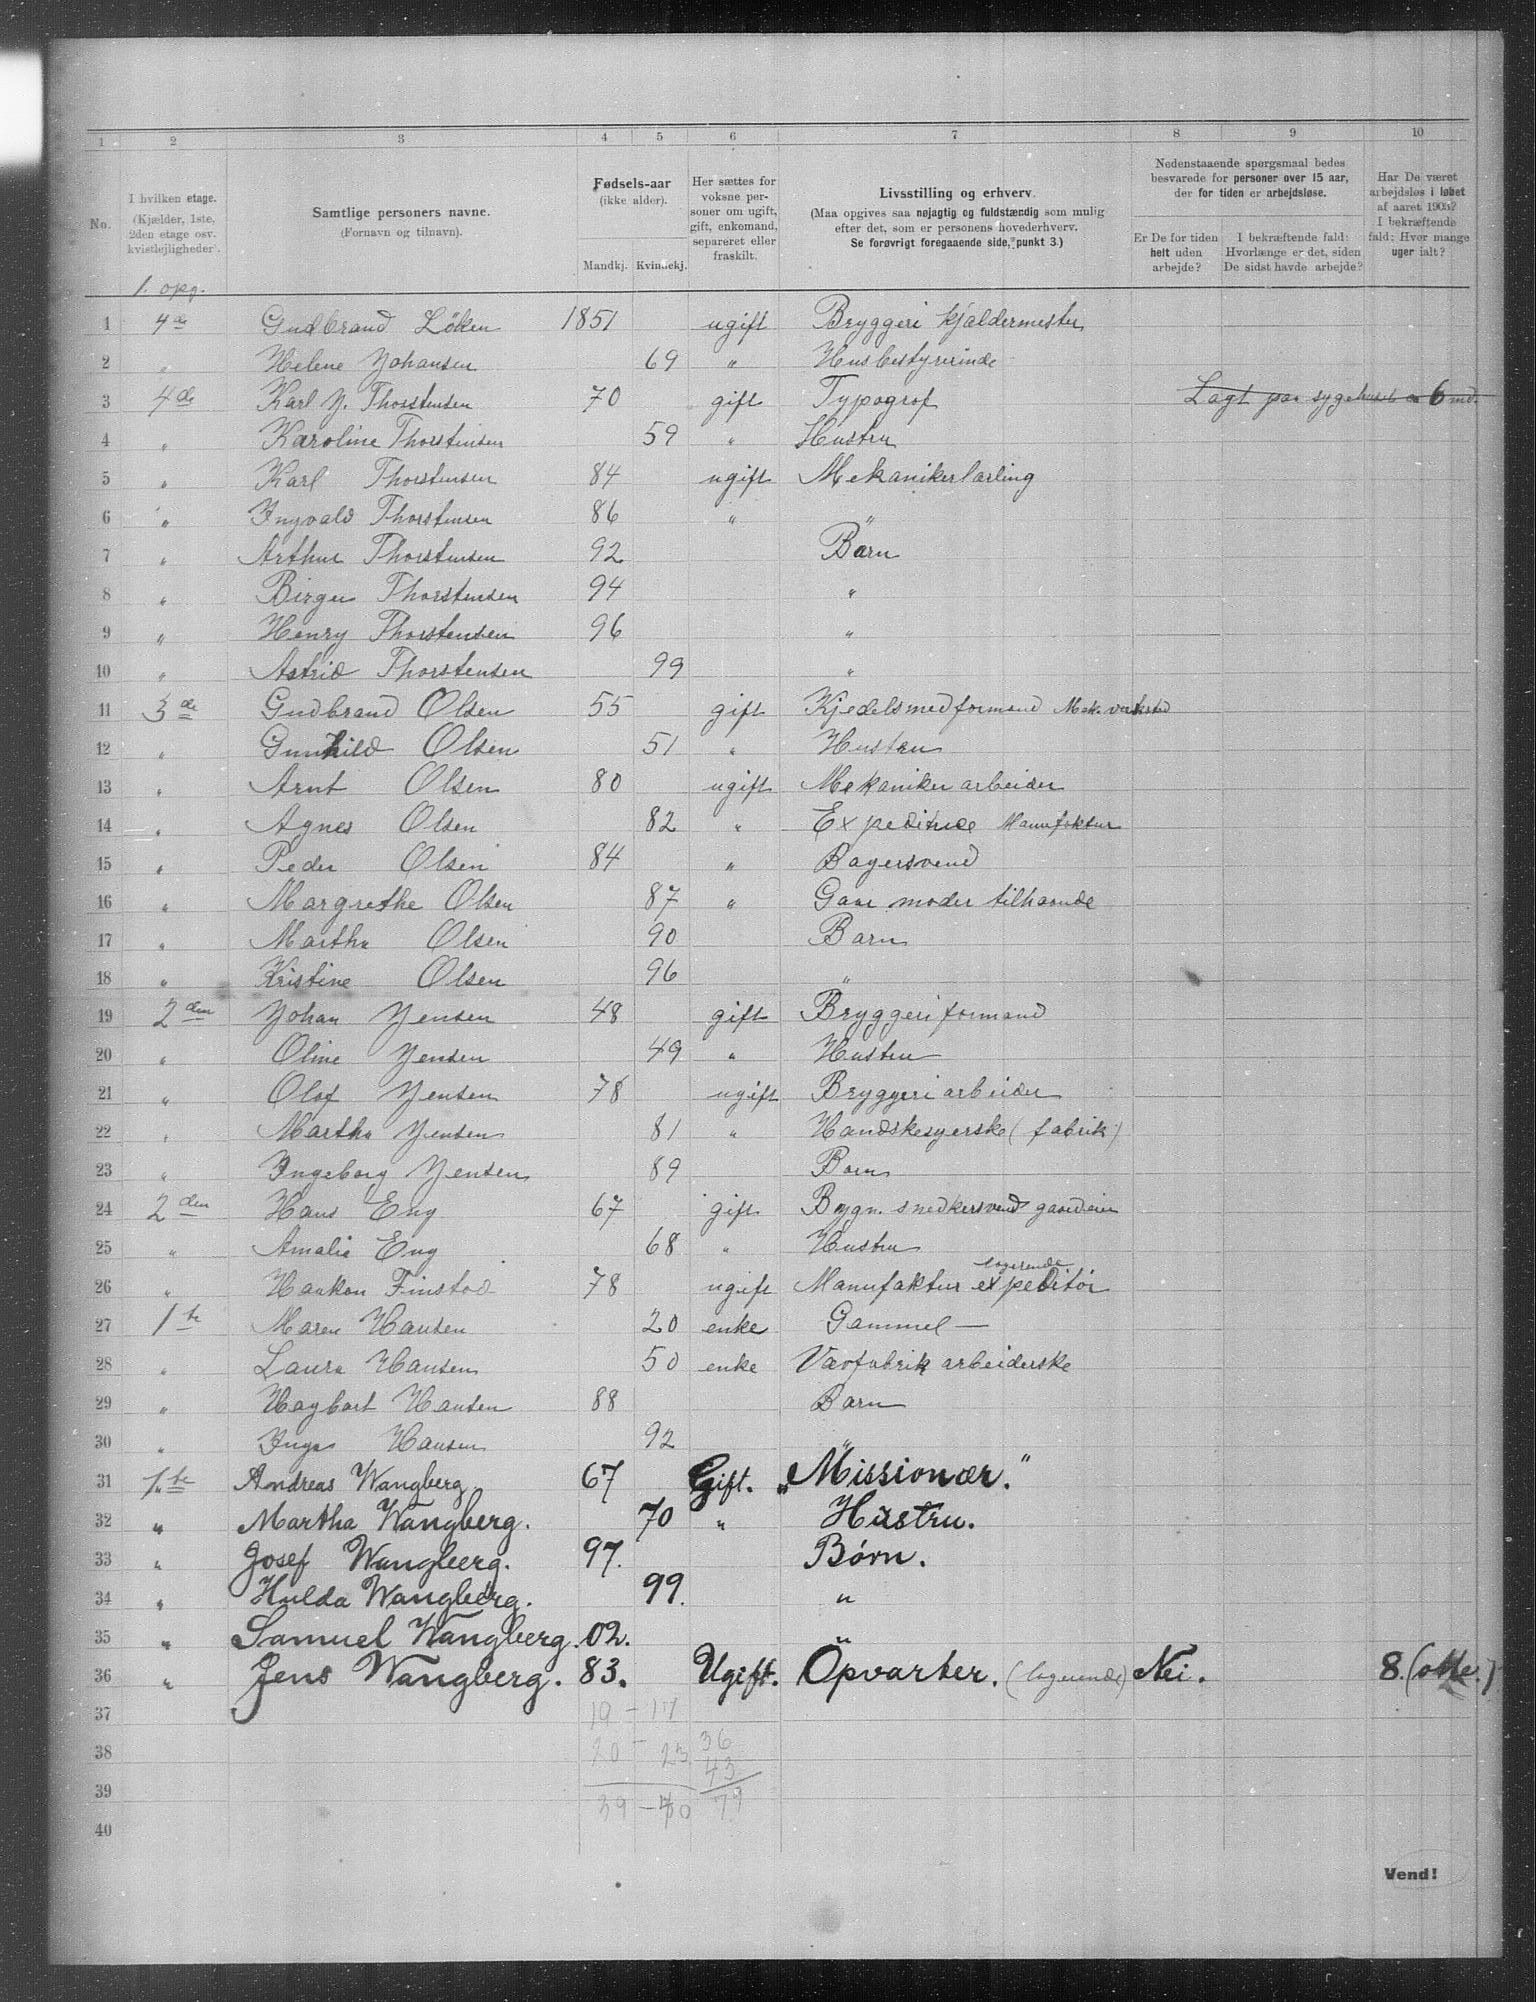 1 2 3 4 5 6 7 8 9 10
No. I hvilken etage. (Kjælder, 1ste, 2den etage osv. kvistlejligheder). Samtlige personers navne. (Fornavn og tilnavn). Fødsels-aar (ikke alder). Mandkj. Kvindekj. Her sættes for voksne personer om ugift, gift, enkemand, separeret eller fraskilt. Livsstilling og erhverv. (Maa opgives saa nøjagtig og fuldstændig som mulig efter det, som er personens hovederhverv. Se forøvrigt foregaaende side, punkt 3.) Nedenstaaende spørgsmaal bedes besvarede for personer over 15 aar, der for tiden er arbejdsløse. Er De for tiden helt uden arbejde? I bekræftende fald: Hvorlænge er det, siden De sidst havde arbejde? Har De været arbejdsløs i løbet af aaret 1905? I bekræftende fald: Hvor mange uger ialt?
1. opg.
1 4de Gudbrand Löken 1851 ugift Bryggeri kjældermester
2 " Helene Johansen 69 " Husbestyrerinde
3 4de Karl J. Thorstensen 70 gift Typograf Lagt paa sygehuset 6 md.
4 " Karoline Thorstensen 59 " Hustru
5 " Karl Thorstensen 84 ugift Mekanikerlærling
6 " Ingvald Thorstensen 86 " "
7 " Arthur Thorstensen 92 Barn
8 " Birger Thorstensen 94 "
9 " Henry Thorstensen 96 "
10 " Astrid Thorstensen 99 "
11 3de Gudbrand Olsen 55 gift Kjedelsmedformand Mek. verksted
12 " Gunhild Olsen 51 " Hustru
13 " Arnt Olsen 80 ugift Mekaniker arbeider
14 " Agnes Olsen 82 " Expeditrice Manufaktur
15 " Peder Olsen 84 " Bagersvend
16 " Margrethe Olsen 87 " Gaar moder tilhaande
17 " Martha Olsen 90 Barn
18 " Kristine Olsen 96 "
19 2den Johan Jensen 48 gift Bryggeriformand
20 " Oline Jensen 49 " Hustru
21 " Olof Jensen 78 ugift Bryggeriarbeider
22 " Martha Jensen 81 " Handskesyerske (fabrik)
23 " Ingeborg Jensen 89 Barn
24 2den Hans Eng 67 gift Bygn. snedkersvend gaardeier
25 " Amalie Eng 68 " Hustru
26 " Haakon Finstad 78 ugift Manufaktur expeditör logerende
27 1te Maren Hansen 20 enke Gammel —
28 " Laura Hansen 50 enke Vævfabrik arbeiderske
29 " Hagbart Hansen 88 Barn
30 " Inga Hansen 92 "
31 1te Andreas Wangberg 67 Gift. „Missionær."
32 " Martha Wangberg. 70 " Hustru.
33 " Josef Wangberg. 97. Børn.
34 " Hulda Wangberg. 99. "
35 " Samuel Wangberg. 02. "
36 " Jens Wangberg. 83. Ugift. Opvarter. (logerende) Nei. 8. (otte.)
37 19 - 17
38 20 - 23 36
39 43
39 - 40 79
40
Vend!